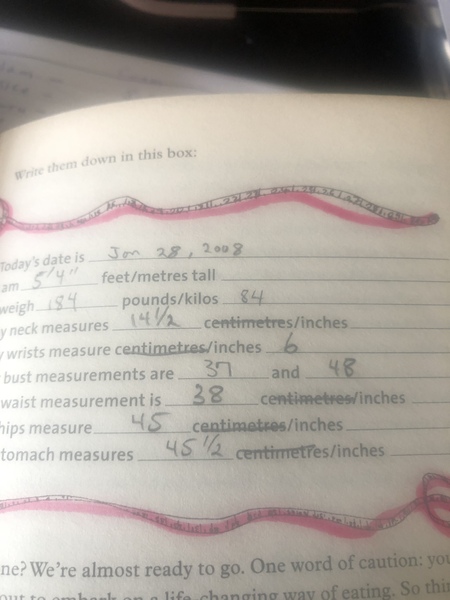 Write them down in this box:
Today's date is Jan 28, 2008
am 5'4" feet/metres tall
weigh 184 pounds/kilos 84
y neck measures 14 1/2 centimetres/inches
wrists measure centimetres/inches 6
bust measurements are 37 and 48
waist measurement is 38 centimetres/inches
hips measure 45 centimetres/inches
tomach measures 45 1/2 centimetres/inches
ne? We're almost ready to go. One word of caution: you
out to embark on a life-changing way of eating. So thin